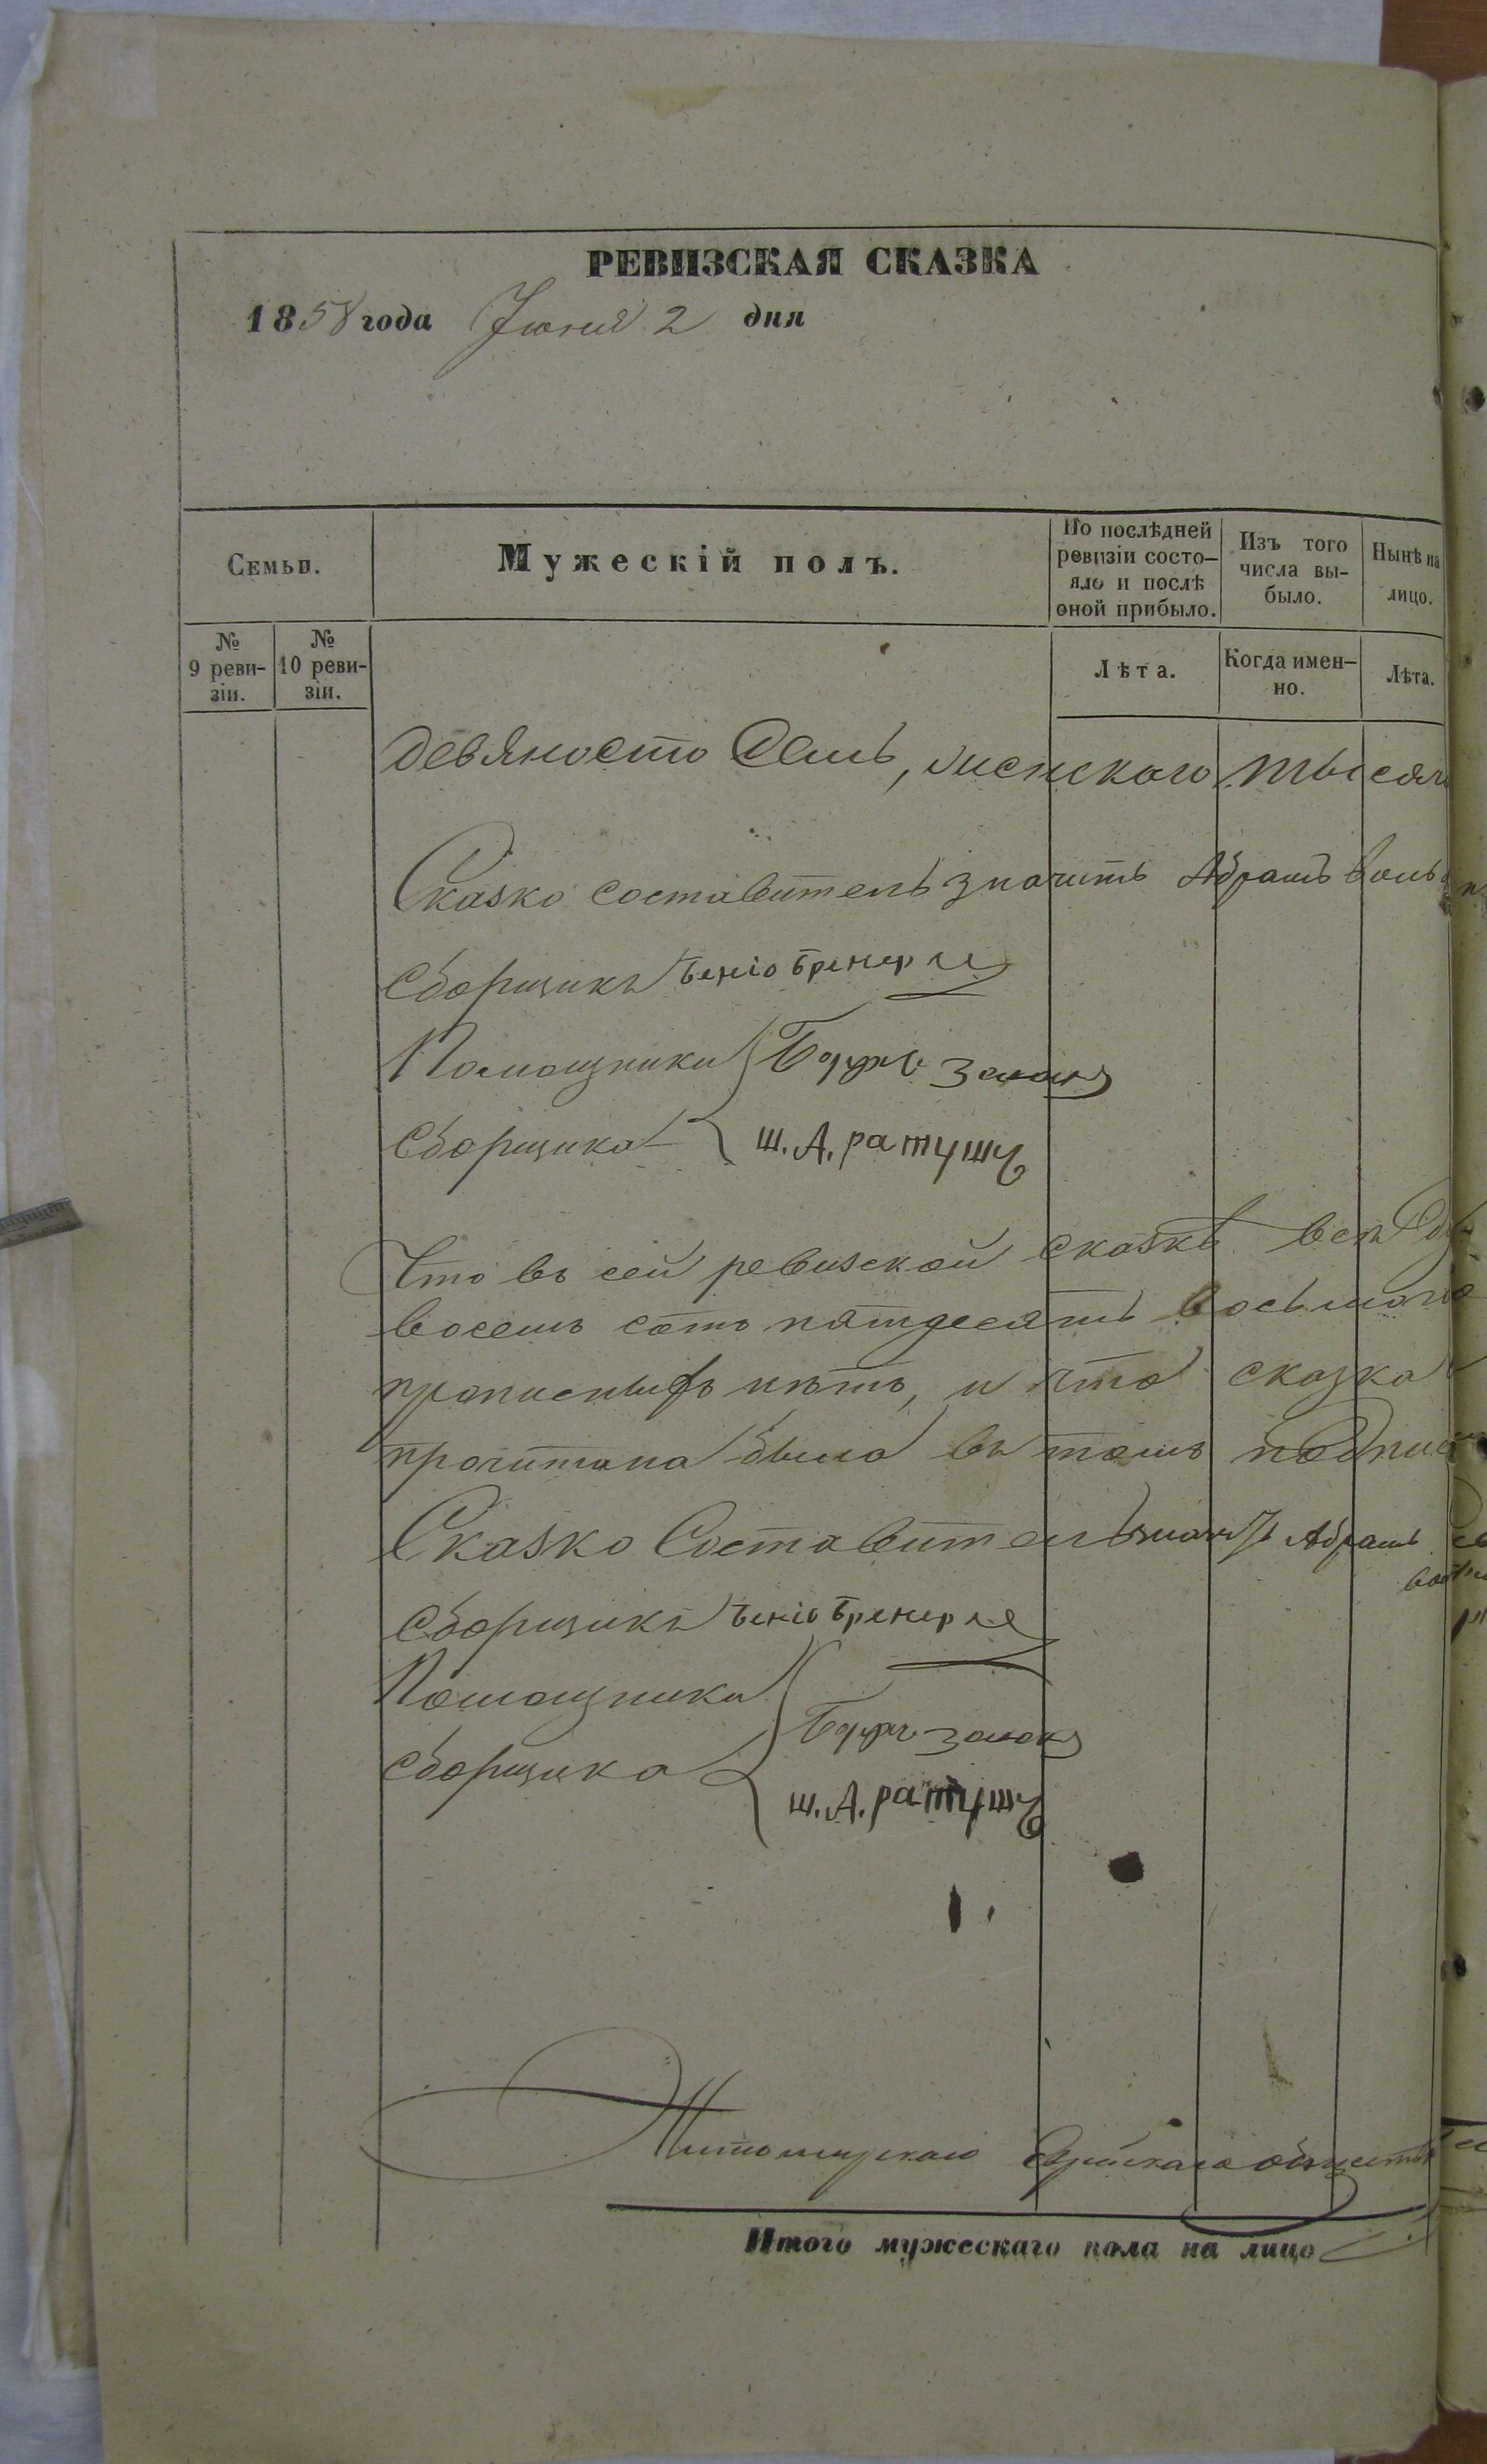 РЕВИЗСКАЯ СКАЗКА
1858 года Іюня 2 дня
Семьи.
Мужескій полъ.
По послѣдней ревизіи состо-яло и послѣ оной прибыло.
Изъ того числа вы-было.
Нынѣ на лицо.
№ 9 реви-зіи.
№ 10 реви-зіи.
Лѣта.
Когда имен-но.
Лѣта.
девяносто семь, женскаго тысяч
Сказко составитель значить Абрамъ
Сборщикъ Беніо Бренер
Помощники
Сборщика Ш. А. ратушу
Что въ сей ревизской сказкѣ всѣ
восемь сотъ пятдесятъ восьмаго
прописныхъ нѣтъ, и что сказка
прочитана была въ томъ подпис
Сказко Составитель значить Абрамъ
Сборщикъ Беніо Бренер
Помощники
Сборщика
Ш. А. ратушу
Житомирскаго Еврейскаго обществ
Итого мужескаго пола на лицо